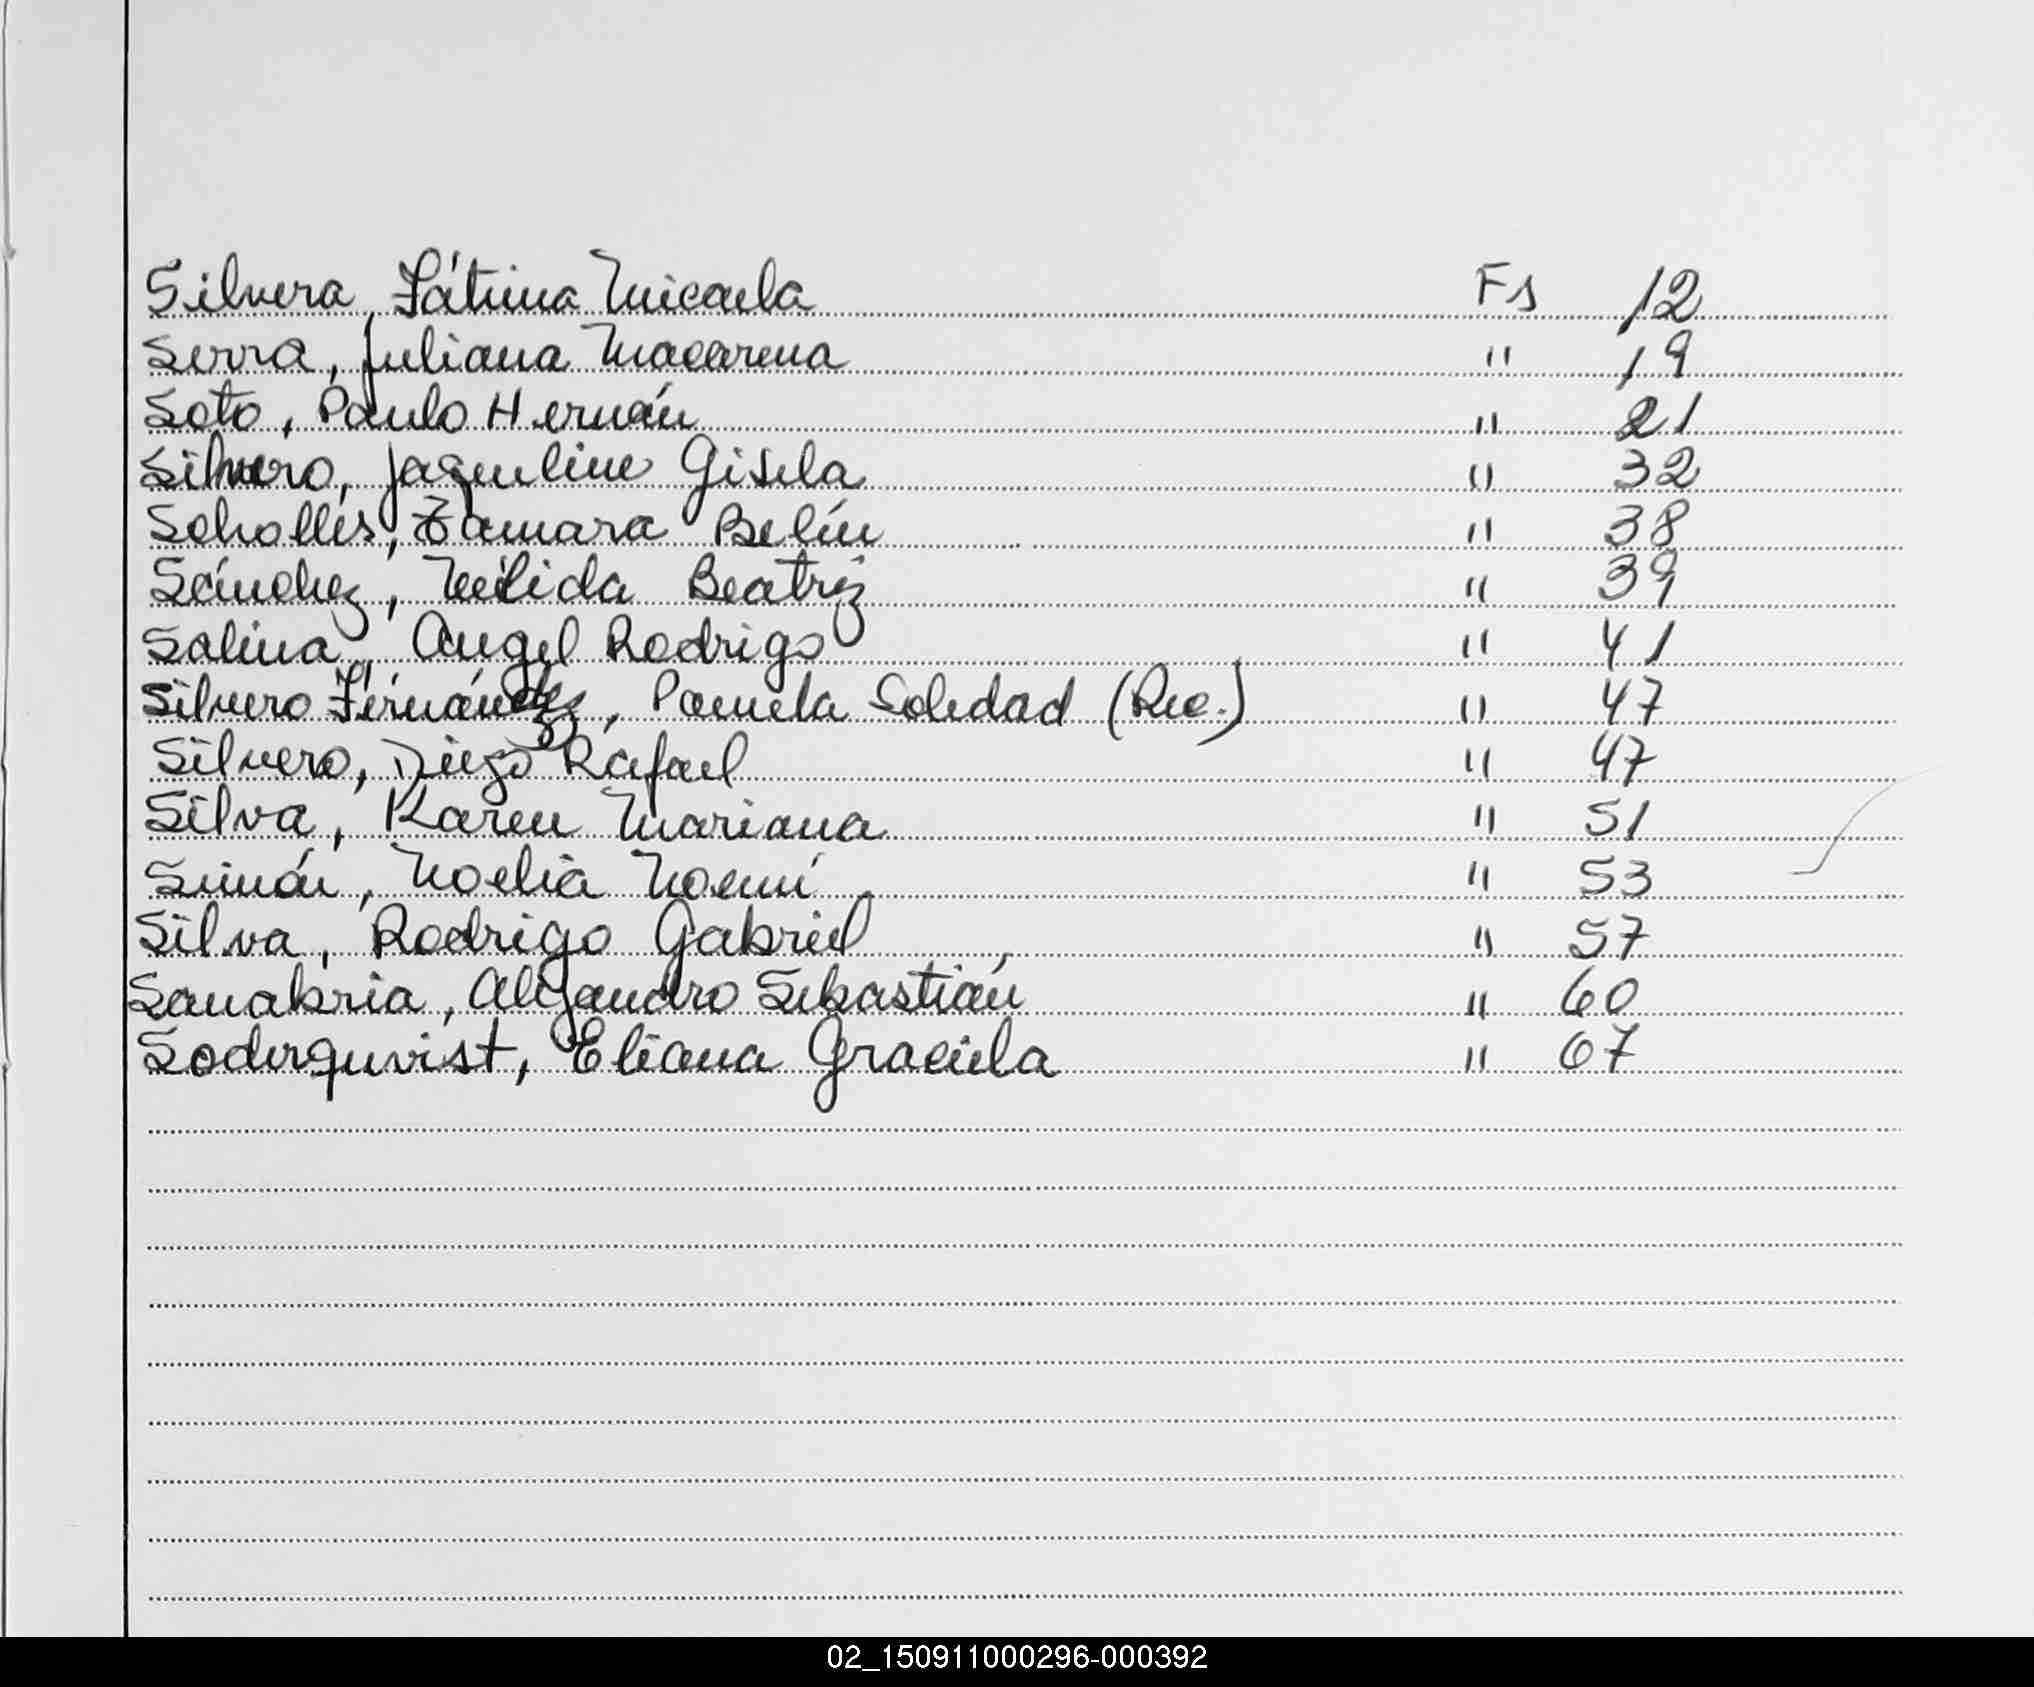 Silvera, Fátima Micaela Fs 12
Serra, Juliana Macarena " 19
Soto, Paulo Hernán " 21
Silvero, Jaqueline Gisela " 32
Scholles, Tamara Belén " 38
Sánchez, Nélida Beatriz " 39
Salina, Angel Rodrigo " 41
Silvero Fernández, Pamela Soledad (Rec.) " 47
Silvero, Diego Rafael " 47
Silva, Karen Mariana " 51
Simón, Noelia Noemí " 53
Silva, Rodrigo Gabriel " 57
Sanabria, Alejandro Sebastián " 60
Soderquvist, Eliana Graciela " 67
02_150911000296-000392